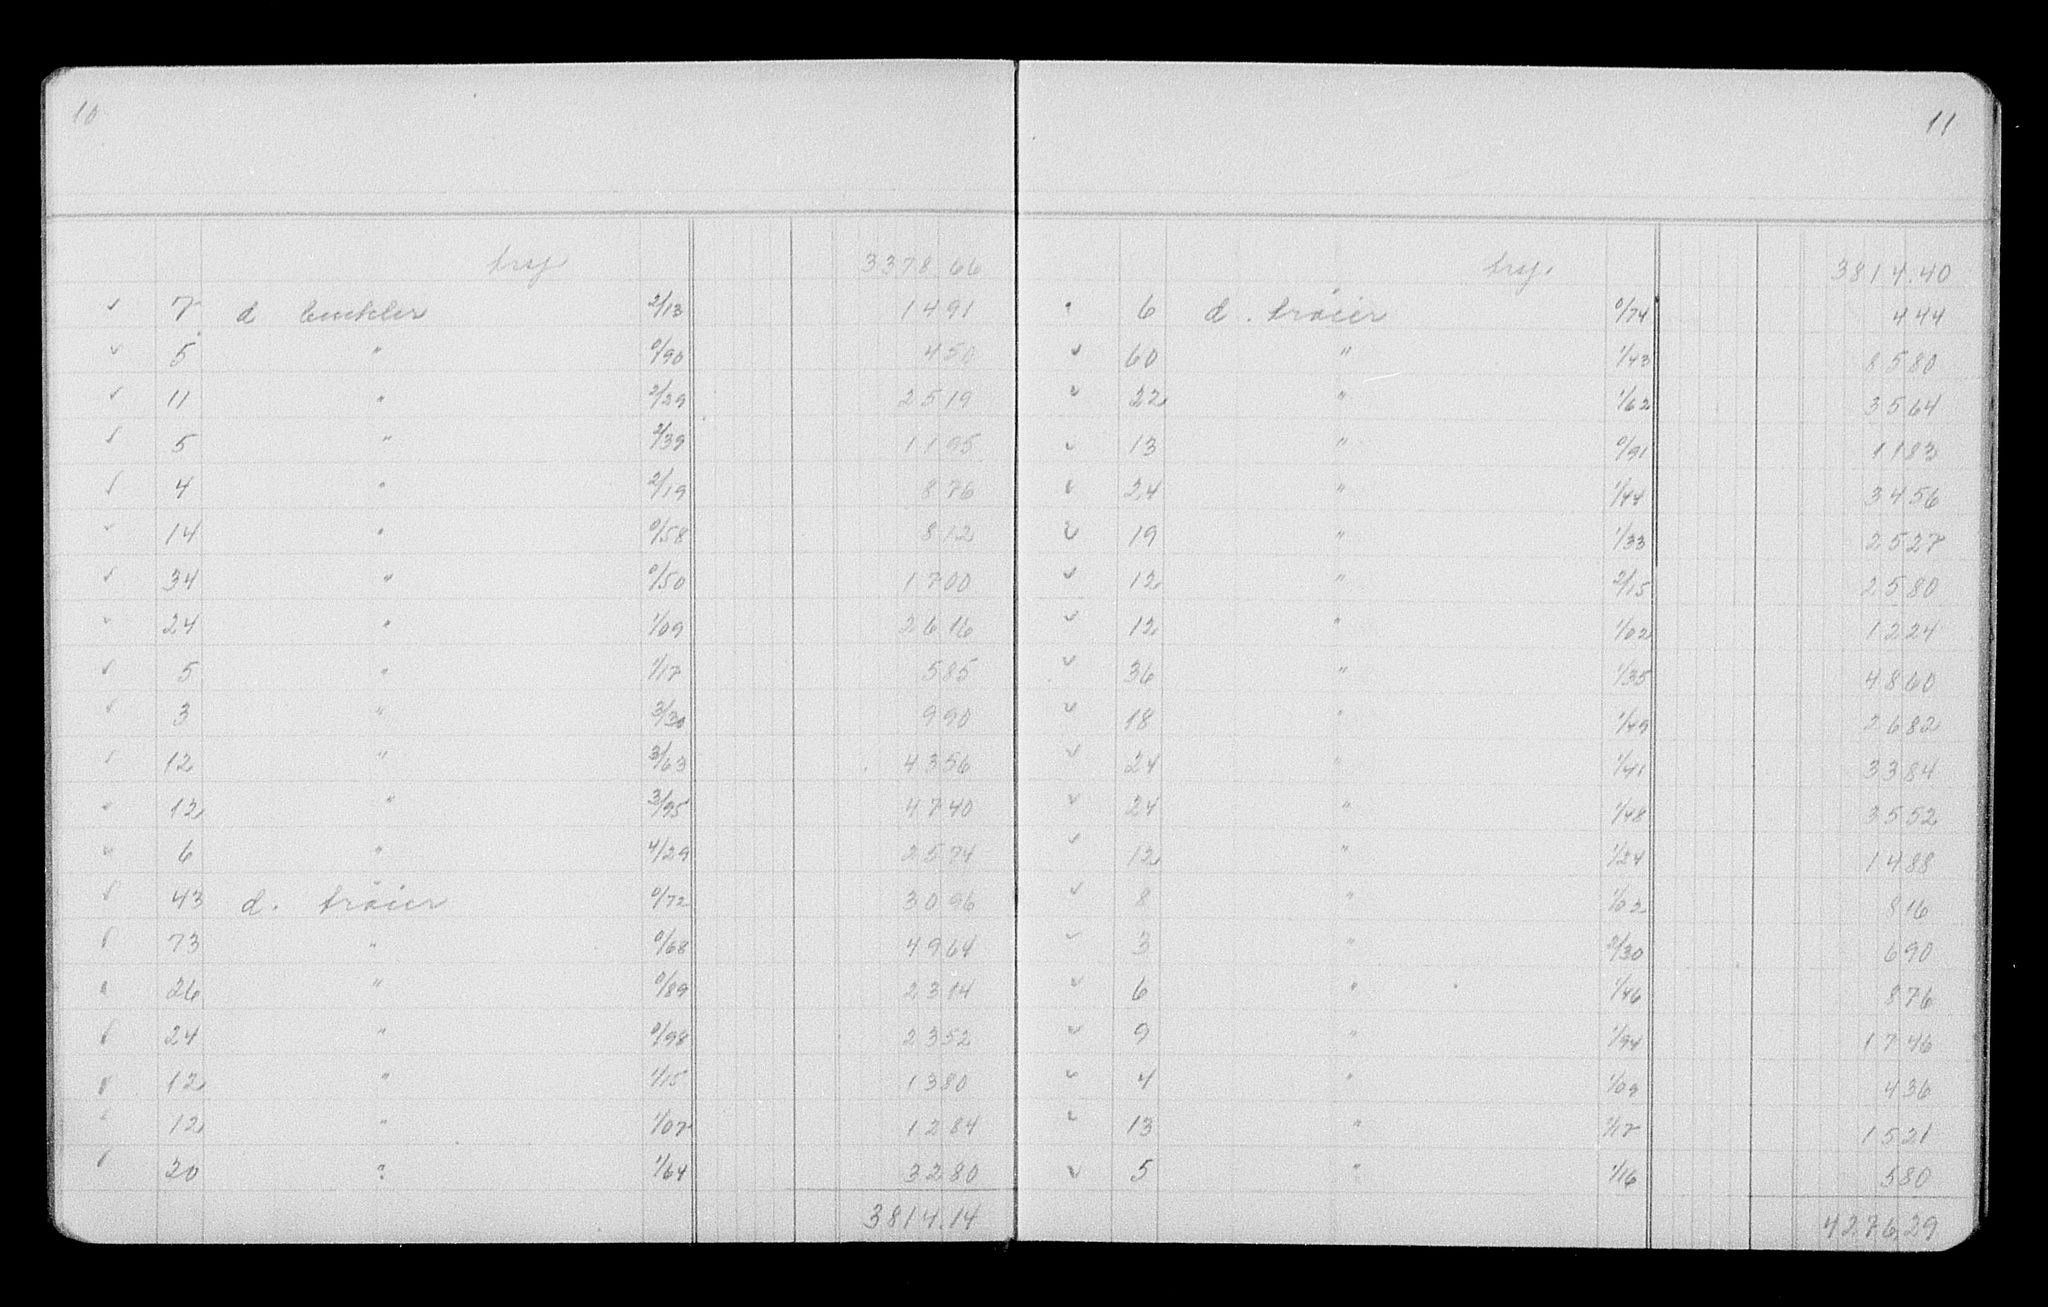 10
trsp 3378.66
7 d Enckler 2/13 1491
5 " 0/90 450
11 " 2/29 2519
5 " 2/39 1195
4 " 2/19 876
14 " 0/58 812
34 " 0/50 1700
24 " 1/09 2616
5 " 1/17 585
3 " 3/30 990
12 " 3/63 4356
12 " 3/95 4740
6 " 4/29 2574
43 d. tröier 0/72 3096
73 " 0/68 4964
26 " 0/89 2314
24 " 0/98 2352
12 " 1/15 1380
12 " 1/07 1284
20 " 1/64 3280
3814.14
11
trsp. 3814.40
6 d. tröier 0/74 444
60 " 1/43 8580
22 " 1/62 3564
13 " 0/91 1183
24 " 1/44 3456
19 " 1/33 2527
12 " 2/15 2580
12 " 1/02 1224
36 " 1/35 4860
18 " 1/49 2682
24 " 1/41 3384
24 " 1/48 3552
12 " 1/24 1488
8 " 1/02 816
3 " 2/30 690
6 " 1/46 876
9 " 1/94 1746
4 " 1/09 436
13 " 1/17 1521
5 " 1/16 580
4276.29